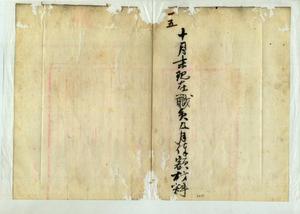 一五
十月末現在職員及月俸額材料